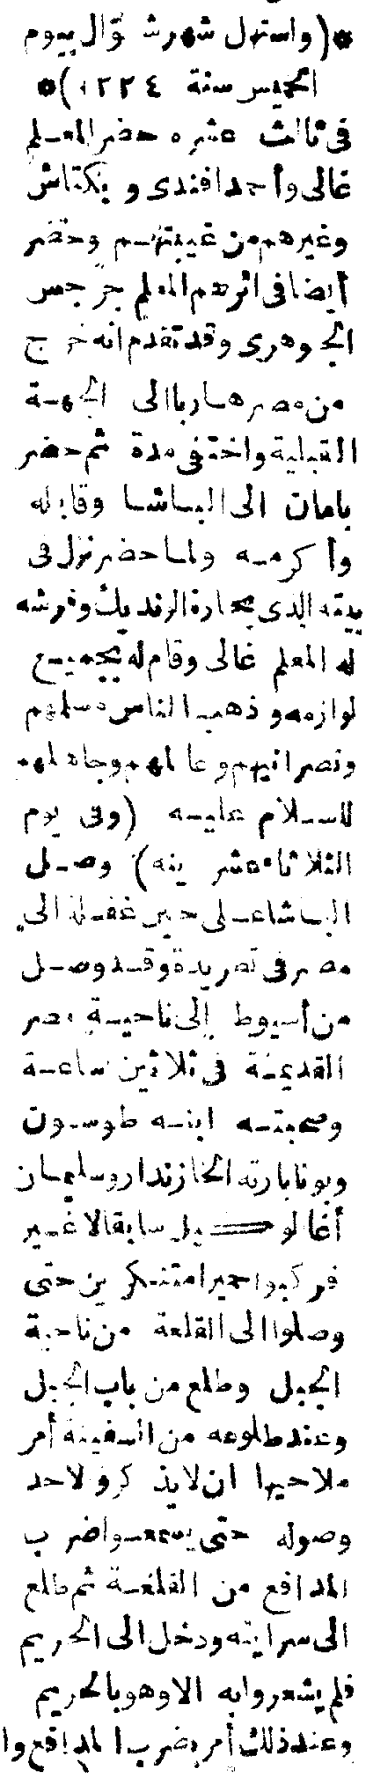 *(واستهل شهر شوّال بيوم
الخميس سنة ١٢٢٤)*
فى ثالث عشره حضر المعلم
غالى وأحمد افندى و بكتاش
وغيرهم من غيبتهم وحضر
أيضا فى اثرهم المعلم جرجس
الجوهرى وقد تقدم انه خرج
من مصر هاربا الى الجهة
القبلية واختفى مدة ثم حضر
بامان الى الباشا وقابله
وأكرمه ولما حضر نزل فى
بيته الذى بحارة الونديك وفرشه
له المعلم غالى وقام له بجميع
لوازمه وذهب الناس مسلمهم
ونصرانيهم وعالمهم وجاهلهم
للسلام عليه (وفى يوم
الثلاثاء عشرينه) وصل
الباشا على حين غفلة الى
مصر فى تصريدة وقد وصل
من أسيوط إلى ناحية مصر
القديمة فى ثلاثين ساعة
وصحبته ابنه طوسون
وبونابارته الخازندار وسليمان
أغا الوكيل سابقا لا غير
فركبوا حميرا متنكرين حتى
وصلوا الى القلعة من ناحية
الجبل وطلع من باب الجبل
وعند طلوعه من السفينة أمر
ملاحيها ان لا يذكروا لاحد
وصوله حتى يسمعوا ضرب
المدافع من القلعة ثم طلع
الى سرايته ودخل الى الحريم
فلم يشعروا به الا وهو بالحريم
وعند ذلك أمر بضرب المدافع وا